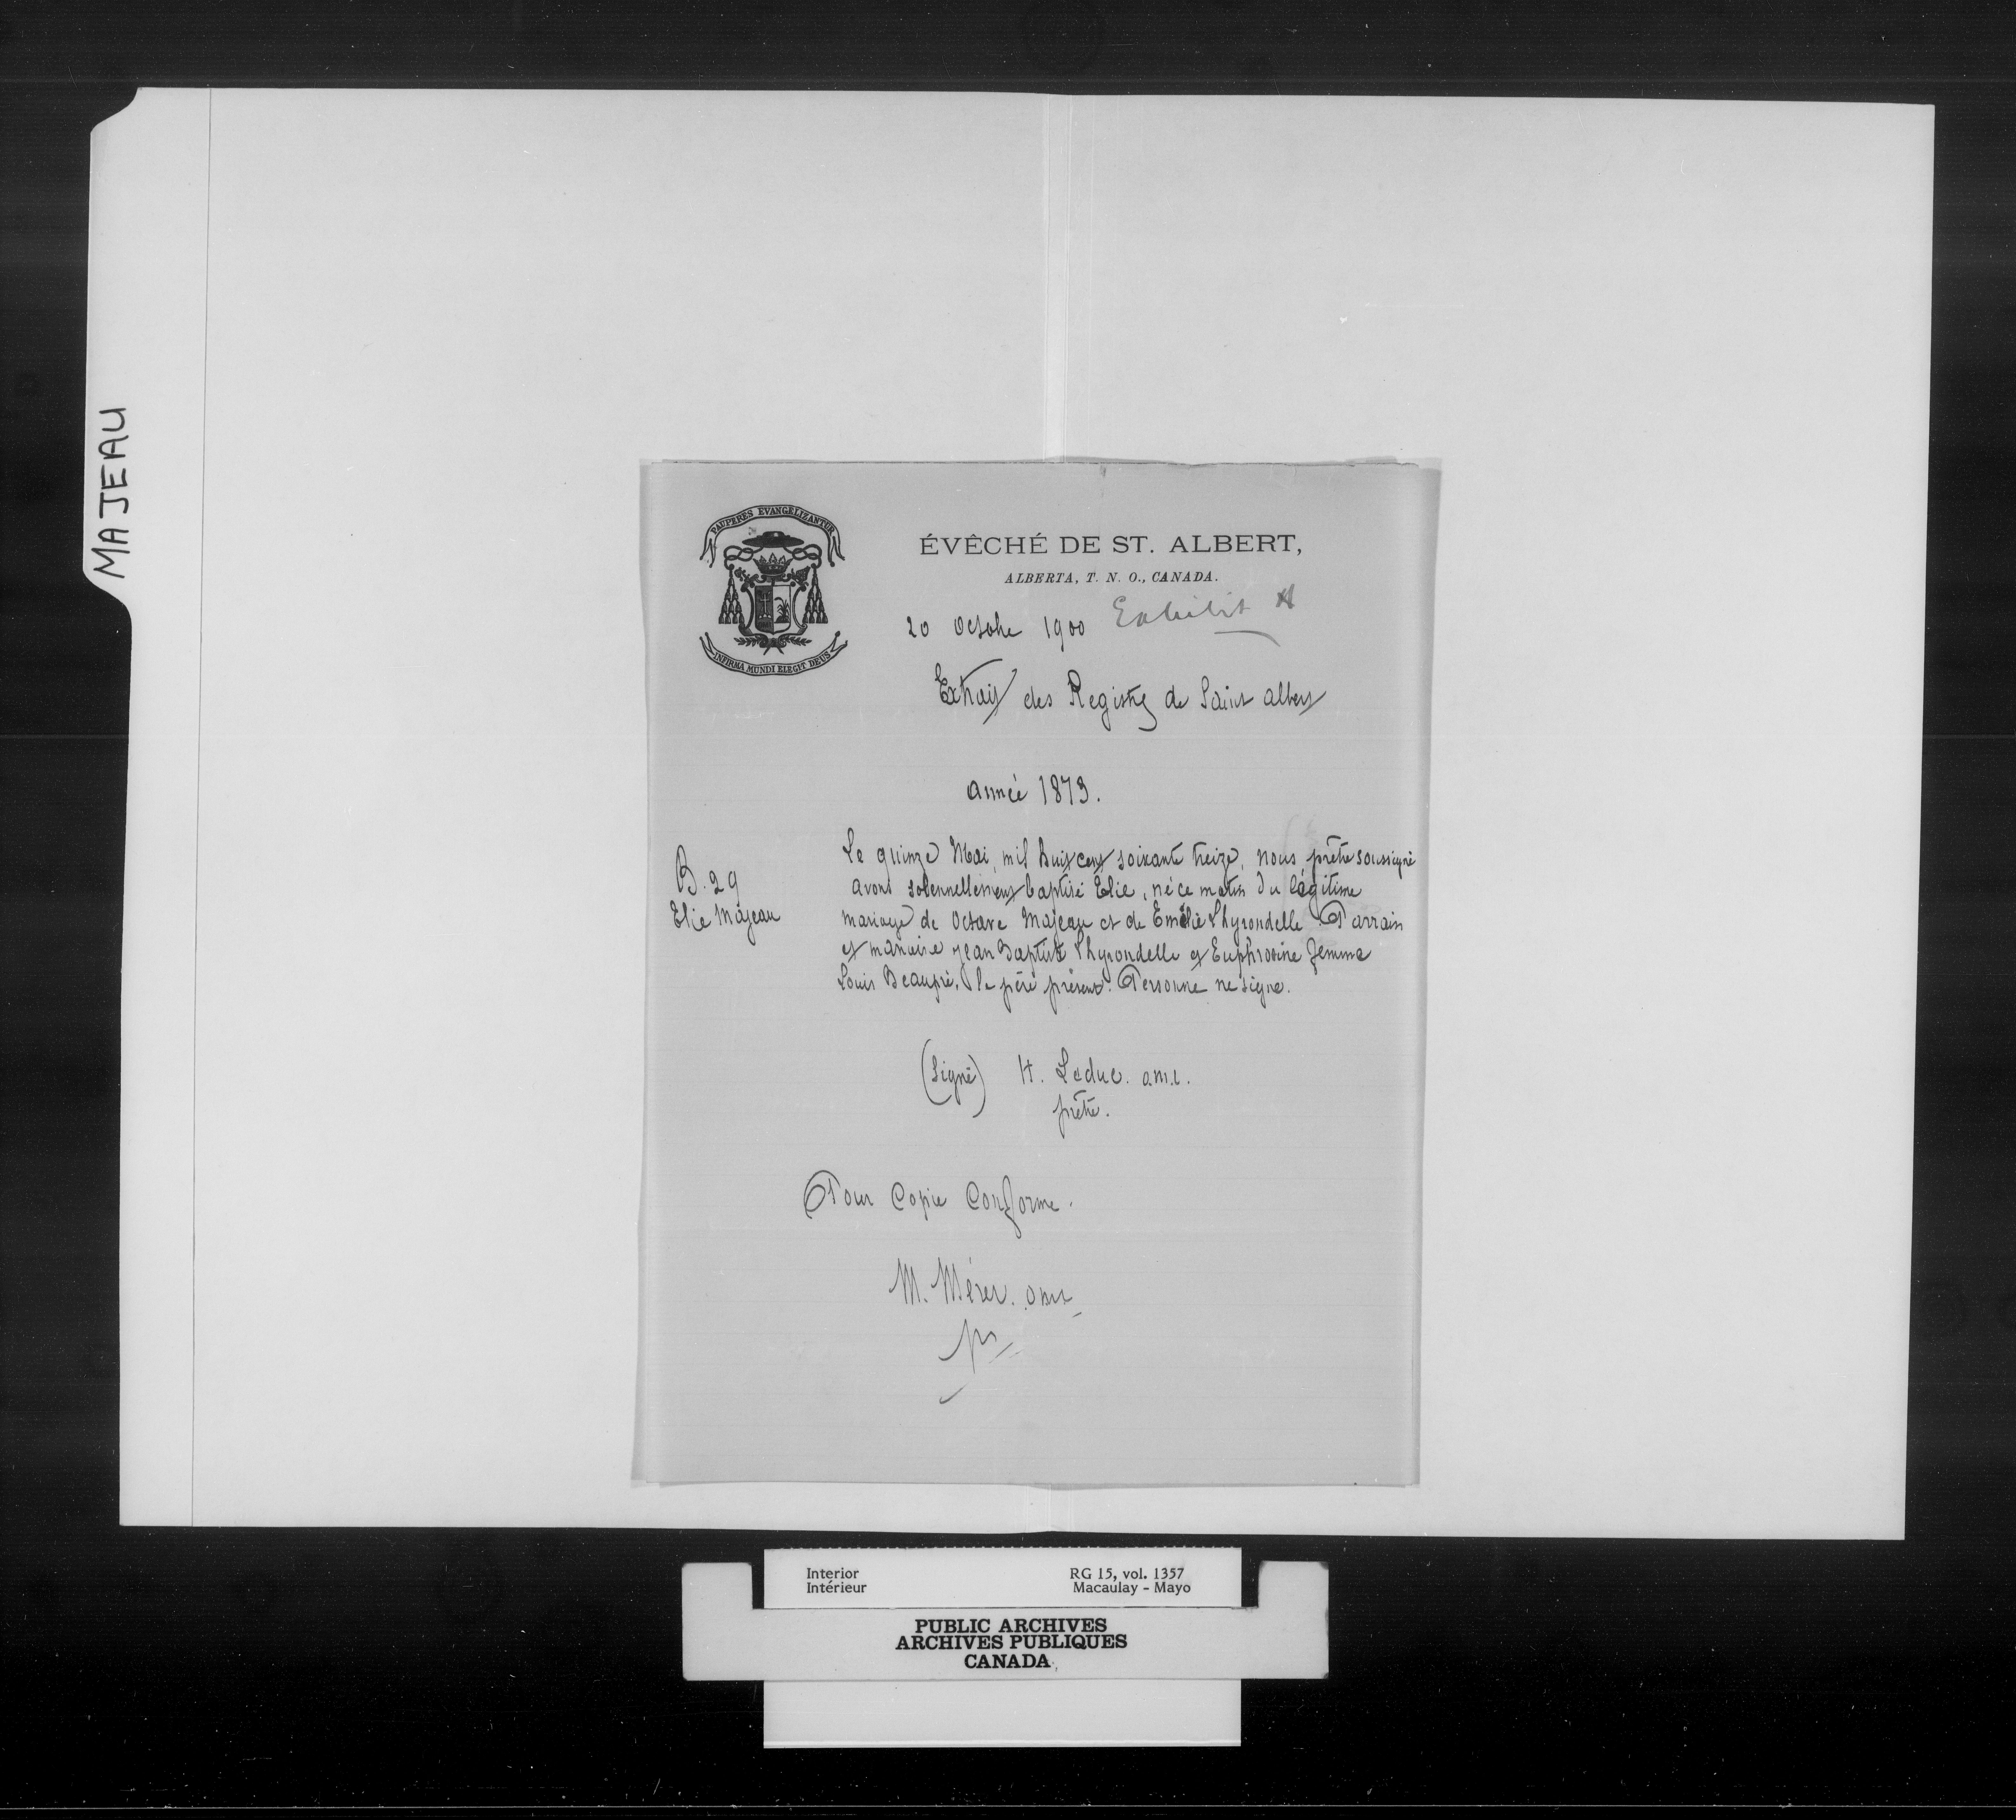 MAJEAU
PAUPERES EVANGELIZANTUR
INFIRMA MUNDI ELEGIT DEUS
ÉVÊCHÉ DE ST. ALBERT,
ALBERTA, T. N. O., CANADA.
20 Octobre 1900 Exhibit A
Extrait des Registres de Saint Albert
Année 1873.
B. 29
Elie Majeau
Le quinze Mai, mil huit cent soixante treize, nous prêtre soussigné
avons solennellement baptisé Elie, né ce matin du légitime
mariage de Octave Majeau et de Emélie Lhyrondelle. Parrain
et marraine Jean Baptiste Lhyrondelle et Euphrosine femme
Louis Beaupré. le père présent. Personne ne signe.
(Signé) H. Leduc. o.m.i.
prêtre.
Pour Copie Conforme.
M. Mérer. omi
Interior
Intérieur
RG 15, vol. 1357
Macaulay - Mayo
PUBLIC ARCHIVES
ARCHIVES PUBLIQUES
CANADA